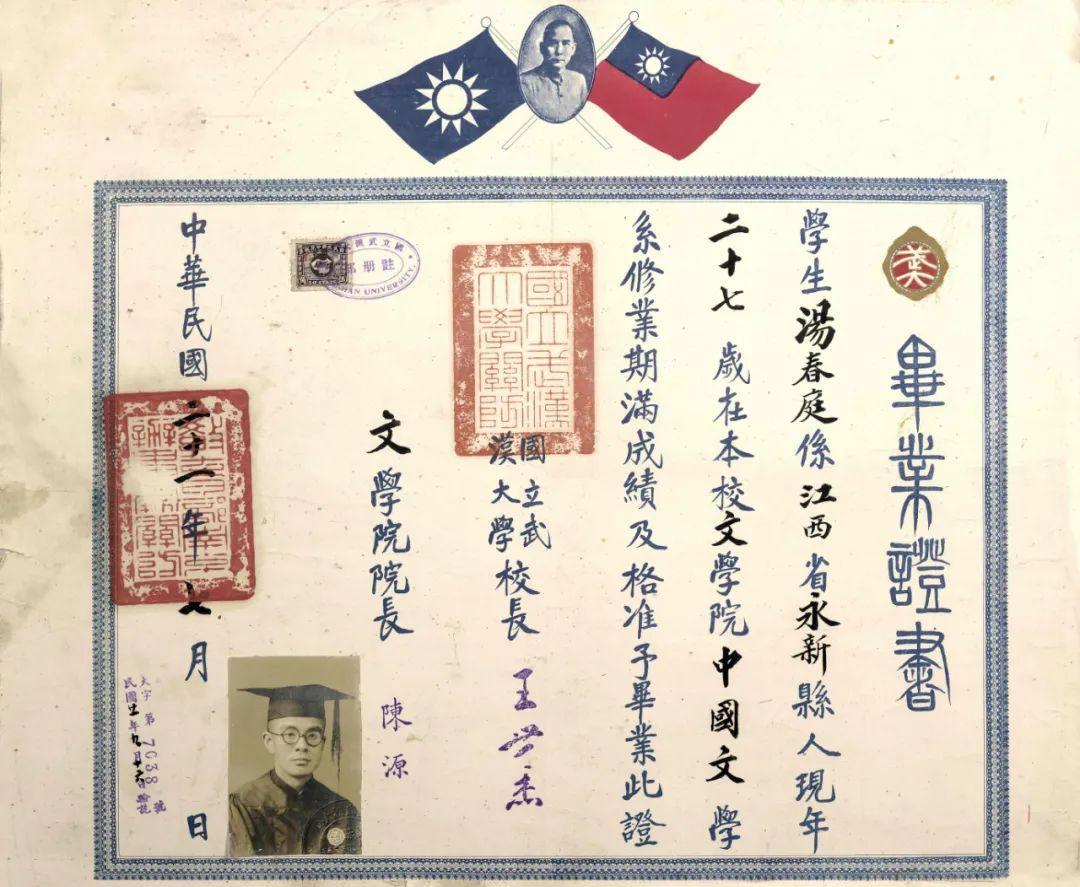 畢業證書
學生湯春庭係江西省永新縣人現年
二十七歲在本校文學院中國文學
系修業期滿成績及格准予畢業此證
國立武漢
大學關防
國立武
漢大學校長 王世杰
文學院院長 陳源
國立武漢
註册部
HAN UNIVERSITY.
中華民國二十一年七月 日
大字第7638號